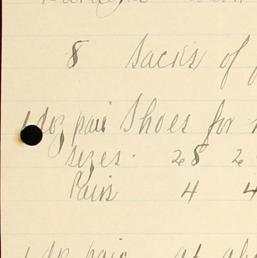 8 Sacks of
1 doz pair Shoes for
Sizes. 28 2
Pairs 4 4
1 doz pair